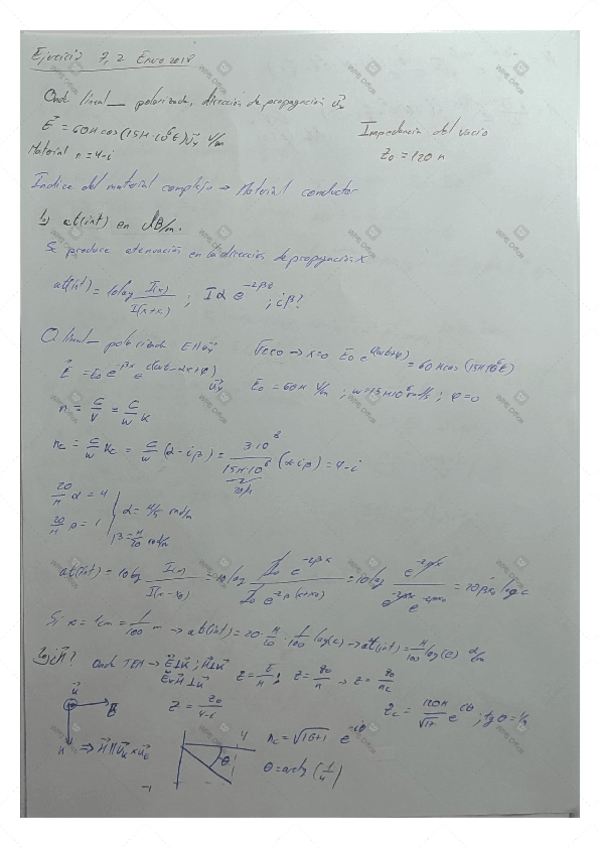 Ejercicio 7, 2 Enero 2018
Onda lineal_ polarizada, dirección de propagación u⃗x
E⃗ = 60π cos(15π·10⁶t) u⃗y V/m
Impedancia del vacio
Z₀ = 120 π
Material n = 4-i
Indice del material complejo → Material conductor
1) at(int) en dB/m.
Se produce atenuación en la dirección de propagación x
at(int) = 10log I(x)/I(x+x₀) ; I α e^-2βx ; ¿β?
O lineal_ polarizada E∥u⃗y
x=0 E₀ e^i(ωt+φ) = 60π cos (15π10⁶t)
E⃗ = E₀ e^-βx e^i(ωt-αx+φ) u⃗y
E₀ = 60π V/m ; ω=15π10⁶ rad/s ; φ=0
n = c/v = c/ω k
nc = c/ω kc = c/ω (α-iβ) = 3·10⁸/15π·10⁶ (α-iβ) = 4-i
20/π α = 4
20/π β = 1
α = π/5 rad/m
β = π/20 rad/m
at(int) = 10log I(x)/I(x+x₀) = 10log I₀ e^-2βx / I₀ e^-2β(x+x₀) = 10log e^-2βx / e^-2βx e^-2βx₀ = 20βx₀ log e
Si x = 1cm = 1/100 m → at(int) = 20·π/20·1/100 log(e) → at(int) = π/100 log(e) dB/cm
2) ¿H⃗? Onda TEM → E⃗⊥u⃗ ; H⃗⊥u⃗
E⃗×H⃗⊥u⃗
Z = E/H ; Z = Z₀/n → Z = Z₀/nc
Z = Z₀/4-i
Zc = 120π/√17 e^iθ ; tg θ = 1/4
u⃗
E
H
⇒ H⃗∥u⃗k×u⃗E
4
θ
-1
nc = √16+1 e^-iθ
θ = arctg (1/4)